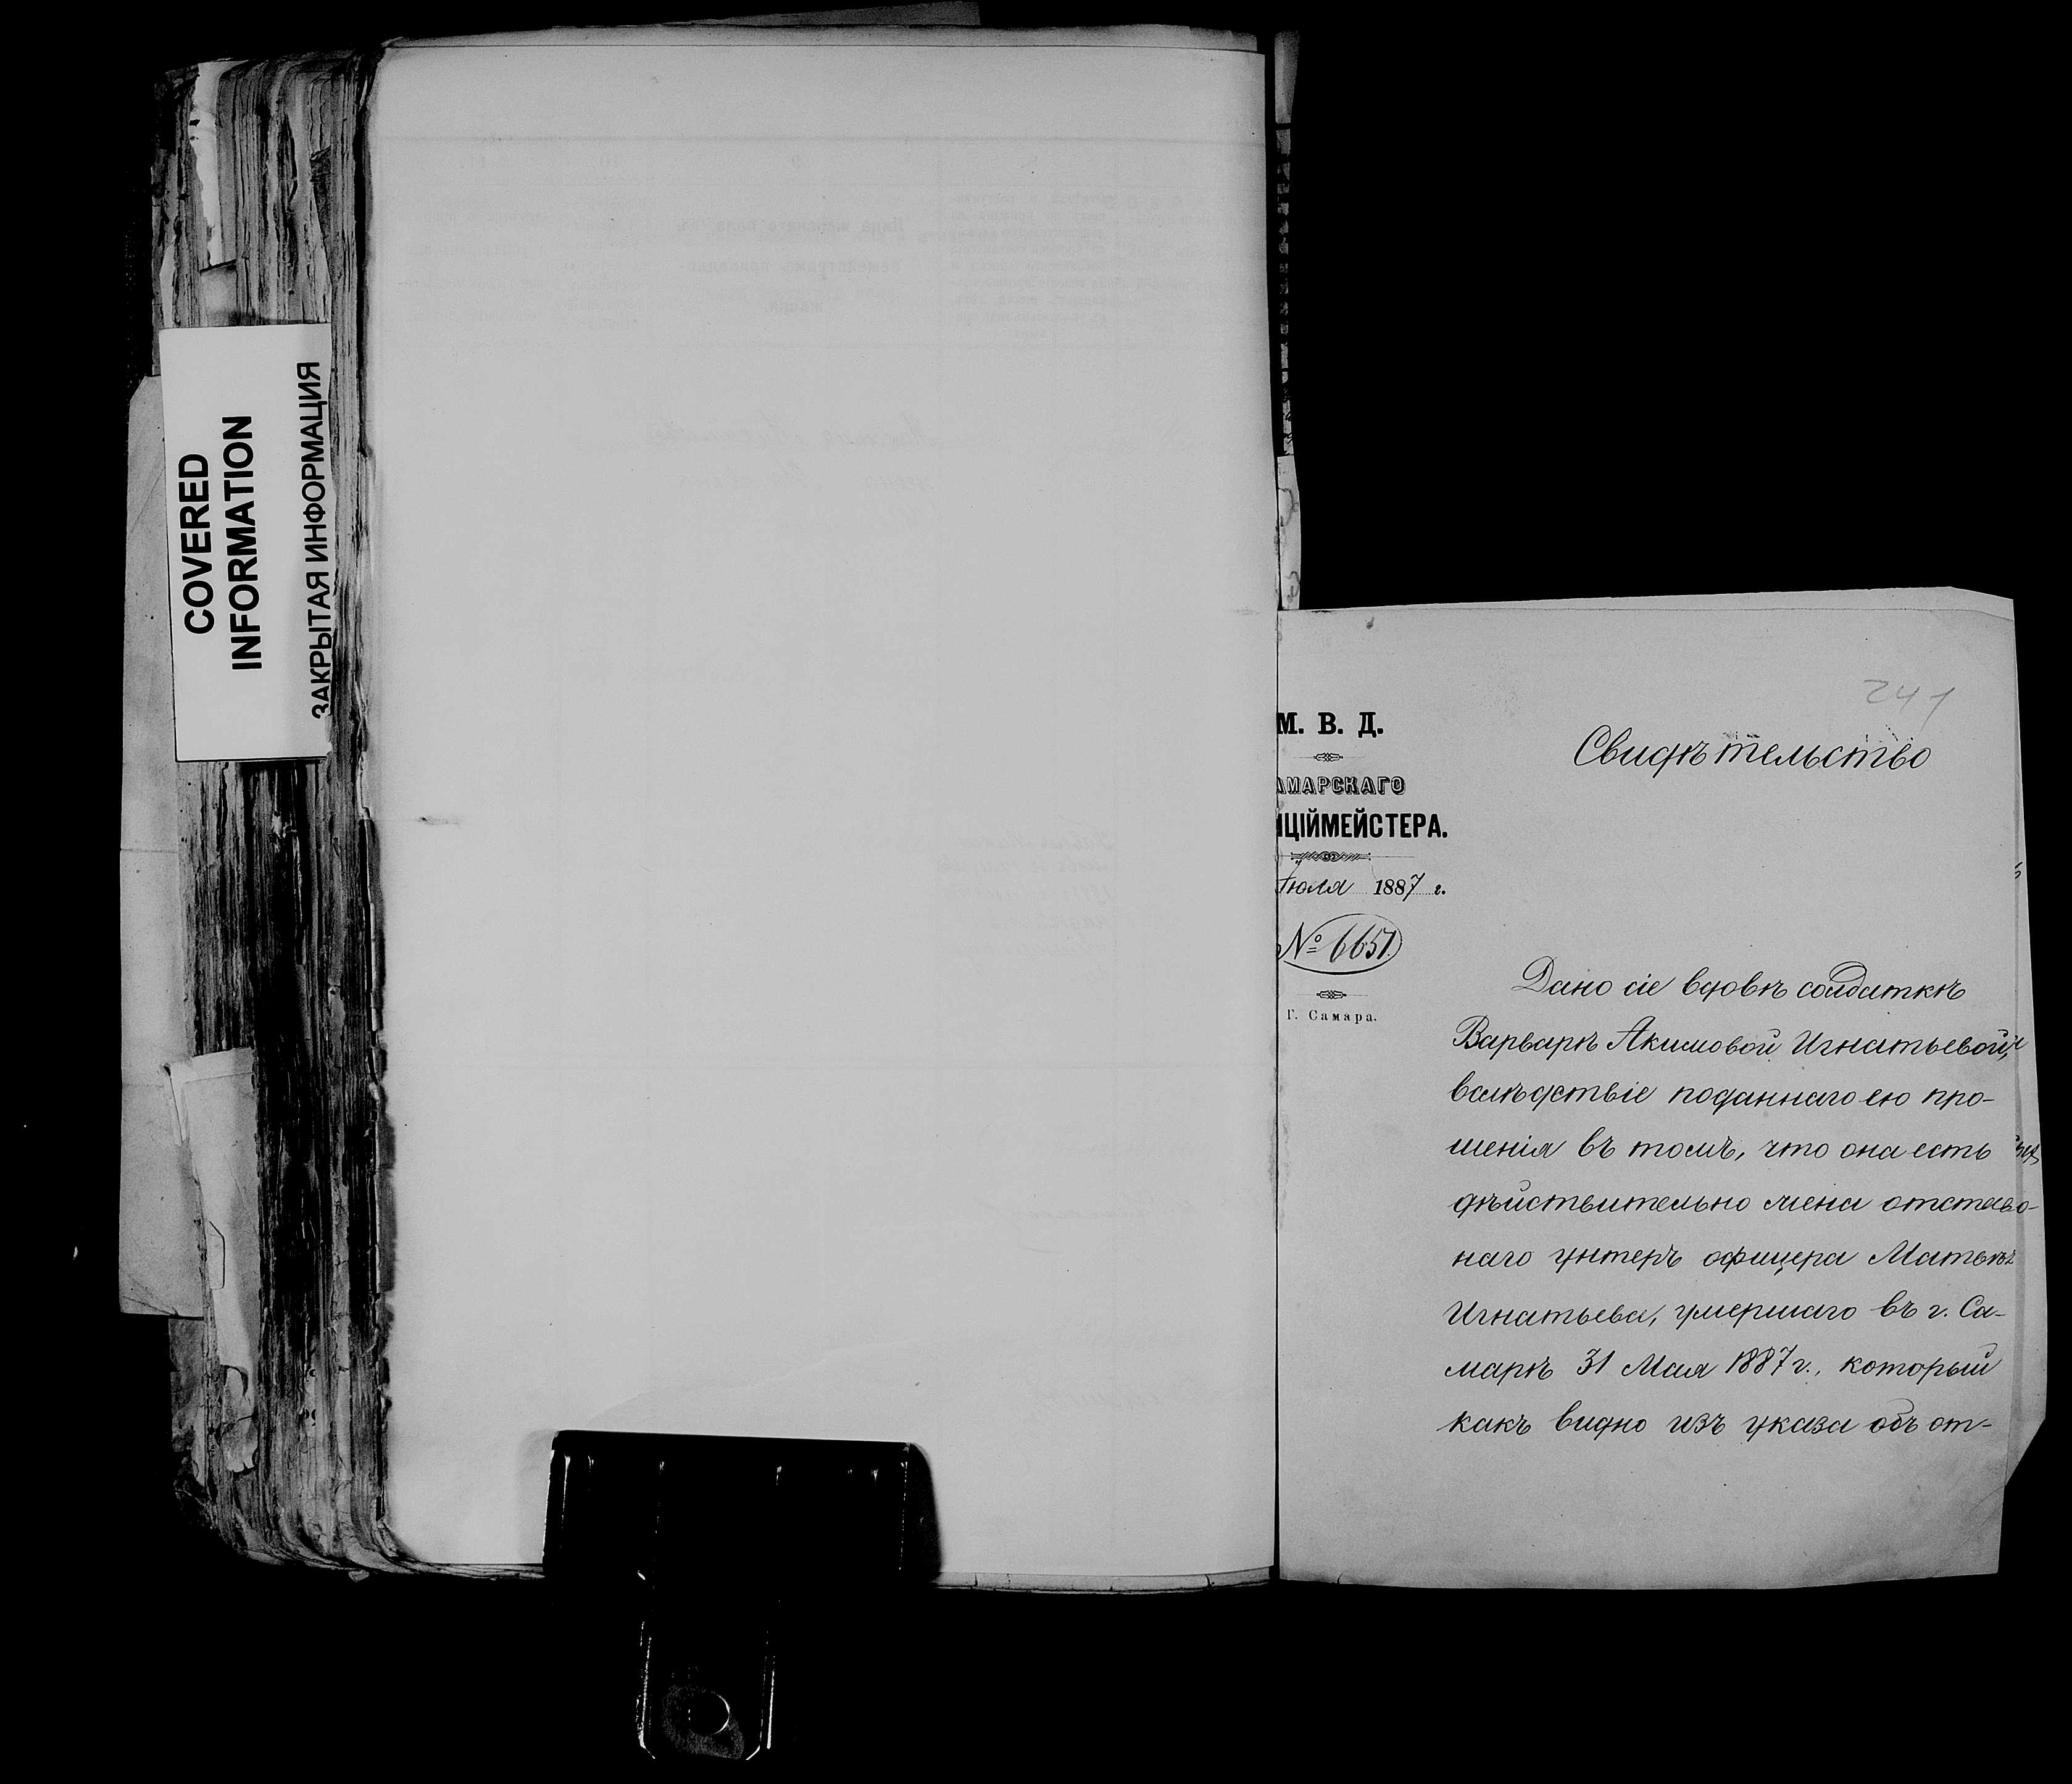 COVERED
INFORMATION
ЗАКРЫТАЯ ИНФОРМАЦИЯ
241
М. В. Д.
АМАРСКАГО
ИЦІЙМЕЙСТЕРА.
Іюля 1887 г.
№ 6657
Г. Самара.
Свидѣтельство
Дано сіе вдовѣ солдаткѣ
Варварѣ Акимовой Игнатьевой,
вслѣдствіе поданнаго ею про-
шенія въ томъ, что она есть
дѣйствительно жена отстав-
наго унтеръ офицера Матвѣя
Игнатьева, умершаго въ г. Са-
марѣ 31 Мая 1887 г., который
какъ видно изъ указа объ от-